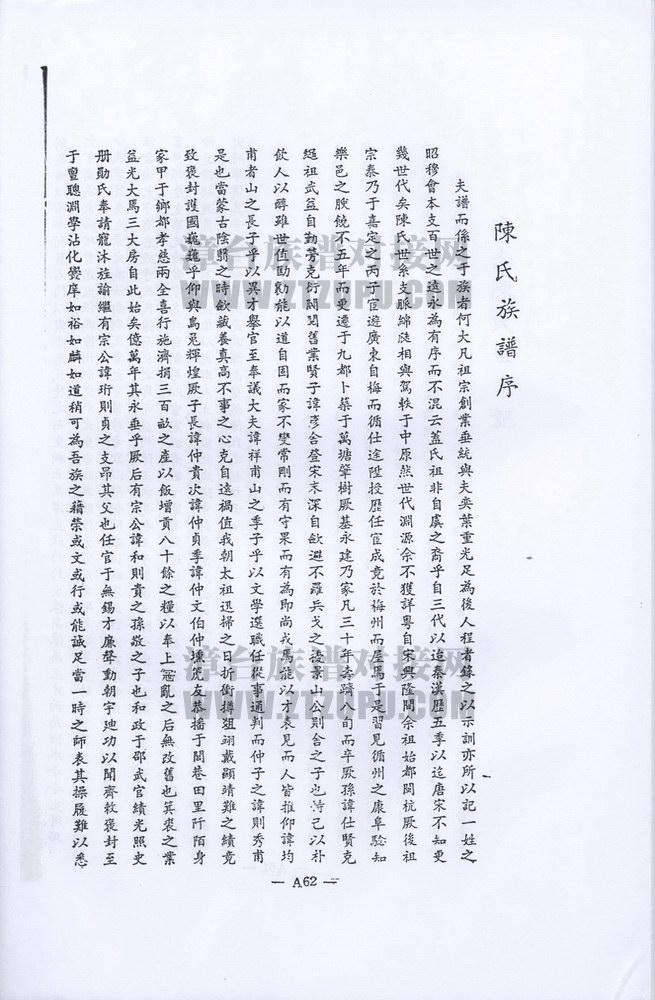 陳氏族譜序
夫譜而係之于族者何大凡祖宗創業垂統與夫奕葉重光足為後人程者錄之以示訓亦所以記一姓之
昭穆會本支百世之遠永為有序而不混云蓋氏祖非自虞之裔乎自三代以迨秦漢歷五季以迄唐宋不知更
幾世代矣陳氏世系支脈綿綿相與駕軼于中原然世代淵源余不獲詳粵自宋興隆間余祖始都閩杭厥後祖
宗泰乃于嘉定之丙子宦遊廣東自梅而循仕途陞授歷任宦成竟於梅州而屋焉于是習見循州之康阜驗知
樂邑之腴饒不五年而更遷于九都卜築于萬塘肇樹厥基永建乃家凡三十年壽躋八旬而卒厥孫諱仕賢克
繩祖武益自勤勞克衍閥閱舊業賢子諱彥舍登宋末深自斂避不罹兵戈之擾景山公則舍之子也恃己以朴
飲人以醇雖世值勛勷能以道自固而家不變常剛而有守果而有為即尚戎馬能以才表見而人皆推仰諱均
甫者山之長子乎以異才舉官至奉議大夫諱祥甫山之季子乎以文學選職任從事通判而仲子之諱則秀甫
是也當蒙古陰翳之時飲藏養真高不事之心克自遠禍值我朝太祖迅掃之日折衝搏俎翊戴顯靖難之績竟
致褒封護國巍巍乎仰與烏兔輝煌厥子長諱仲貴次諱仲貞季諱仲文伯仲壎篪友恭播于閭巷田里阡陌身
家甲于鄉都孝慈兩全喜行施濟捐三百畝之產以飯增貢八十餘之糧以奉上寇亂之后無改舊也箕裘之業
益光大焉三大房自此始矣億萬年其永垂乎厥后有宗公諱和則貴之孫敬之子也和政于邵武官績光照史
册勛氏奉請寵沐旌諭繼有宗公諱珩則貞之支昂其父也任官于無錫才廉聲動朝宇廸功以聞齊敕褒封至
于豐聰淵學沾化黌庠如裕如麟如道稍可為吾族之藉榮或文或行或能誠足當一時之師表其操履難以悉
— A62 —
漳台族谱对接网
WWW.ZTZUPU.COM
漳台族谱对接网
WWW.ZTZUPU.COM